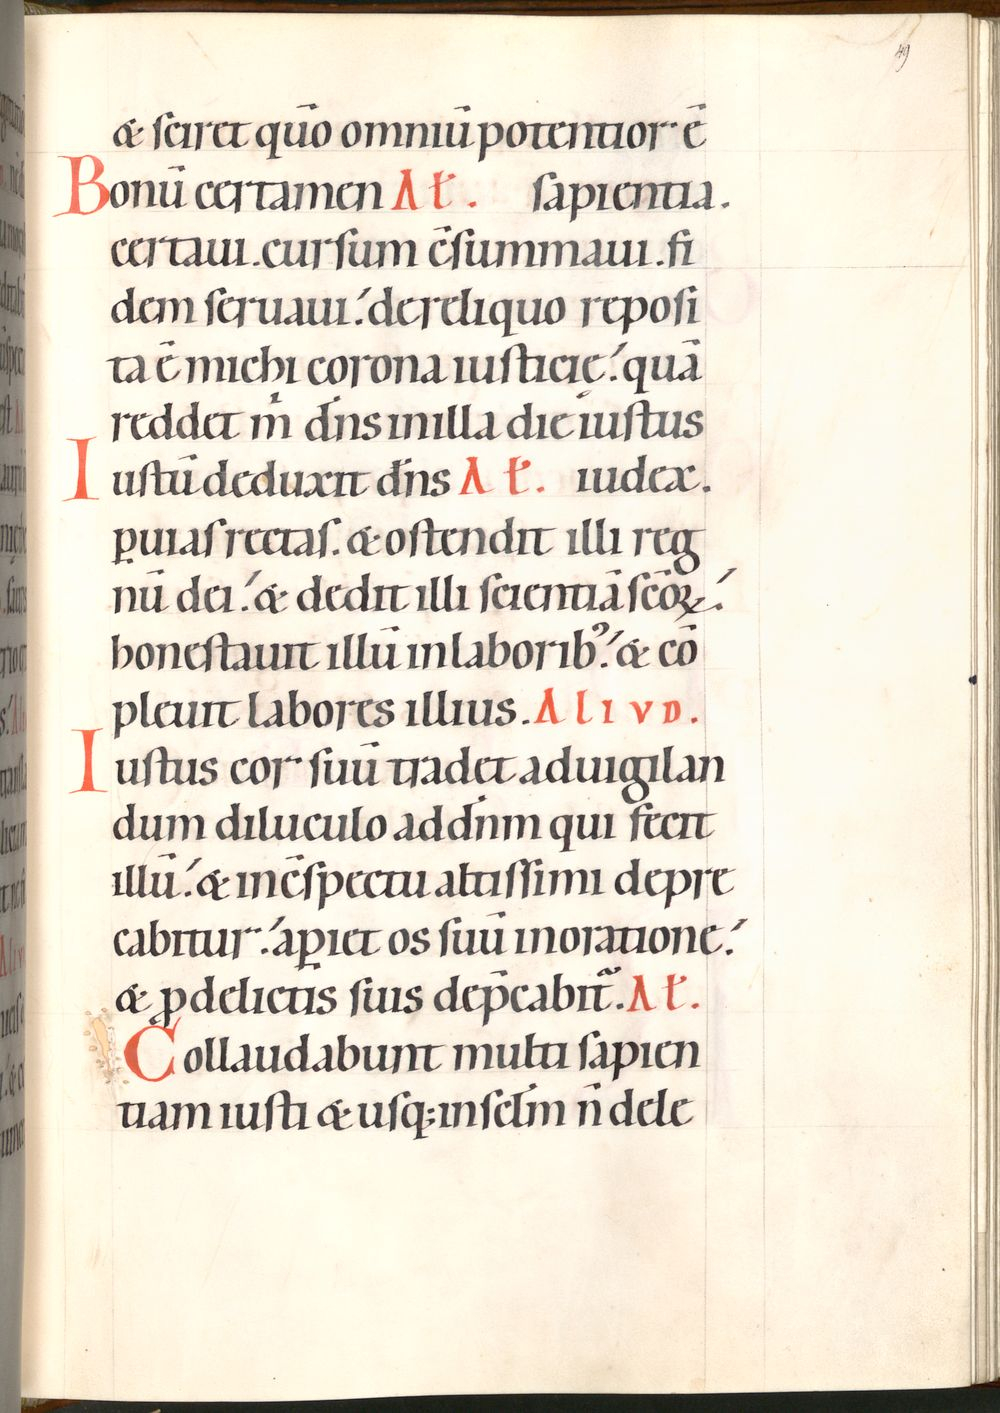 49
& sciret quō omniū potentior ē
Bonū certamen Al̄. sapientia.
certaui. cursum c̄summaui. fi
dem seruaui: dereliquo reposi
ta ē michi corona iusticię: quā
reddet m̄ dn̄s inilla die iustus
Iustū deduxit dn̄s Al̄. iudex.
ꝑuias rectas. & ostendit illi reg
nū dei: & dedit illi scientiā scōꝝ:
honestauit illū inlaborib᾽: & cō
pleuit labores illius. Aliud.
Iustus cor suū tradet aduigilan
dum diluculo addn̄m qui fecit
illū: & inc̄spectu altissimi depre
cabitur: aꝑiet os suū inoratione:
& ꝓdelictis suis dep̄cabit᷑. Al̄.
Collaudabunt multi sapien
tiam iusti & usq; insclm̄ n̄ dele